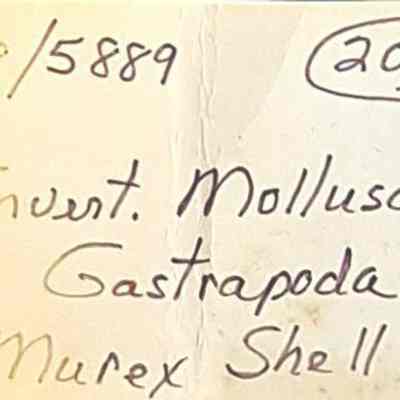 /5889 20
nvert. Mollusc
Gastrapoda
Murex Shell